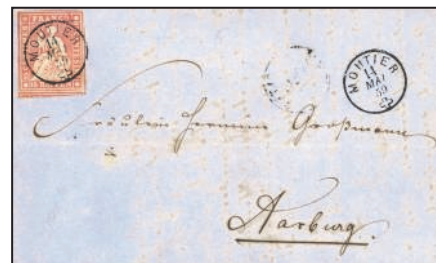 MOUTIER
14
MAI
59
MOUTIER
14
MAI
59
Fräulein Hermine Großmann
Aarburg.